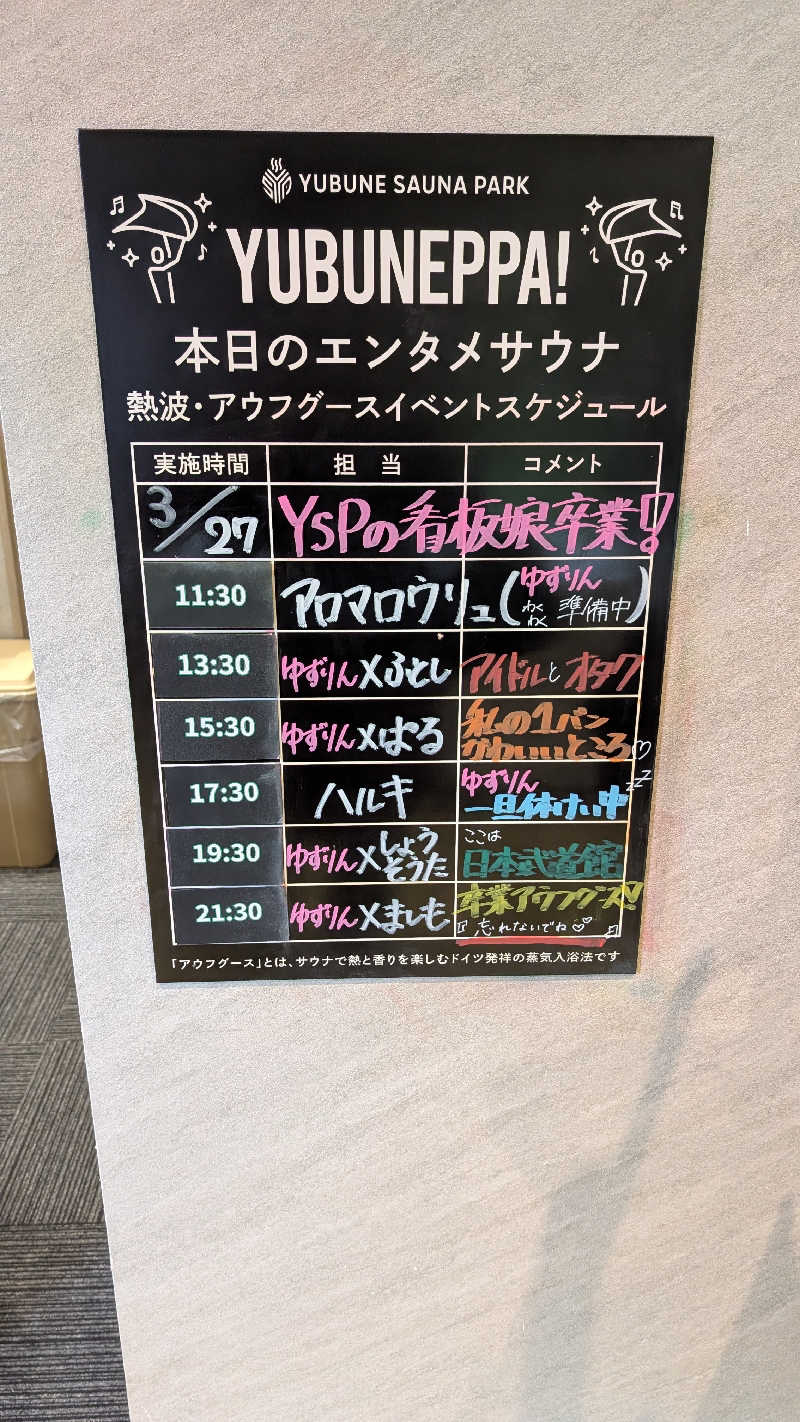 YUBUNE SAUNA PARK
YUBUNEPPA!
本日のエンタメサウナ
熱波・アウフグースイベントスケジュール
実施時間 担当 コメント
3/27 YSPの看板娘卒業!!
11:30 アロマロウリュ(ゆずりん わくわく 準備中)
13:30 ゆずりん×ふとし アイドルとオタク
15:30 ゆずりん×はる 私の1バン
かわいいところ♡
17:30 ハルキ ゆずりん
一旦休けい中 zzz
19:30 ゆずりん×しょう ここは
そうた 日本武道館
21:30 ゆずりん×ましも 卒業アウフグース!
『忘れないでね♡♡』
「アウフグース」とは、サウナで熱と香りを楽しむドイツ発祥の蒸気入浴法です